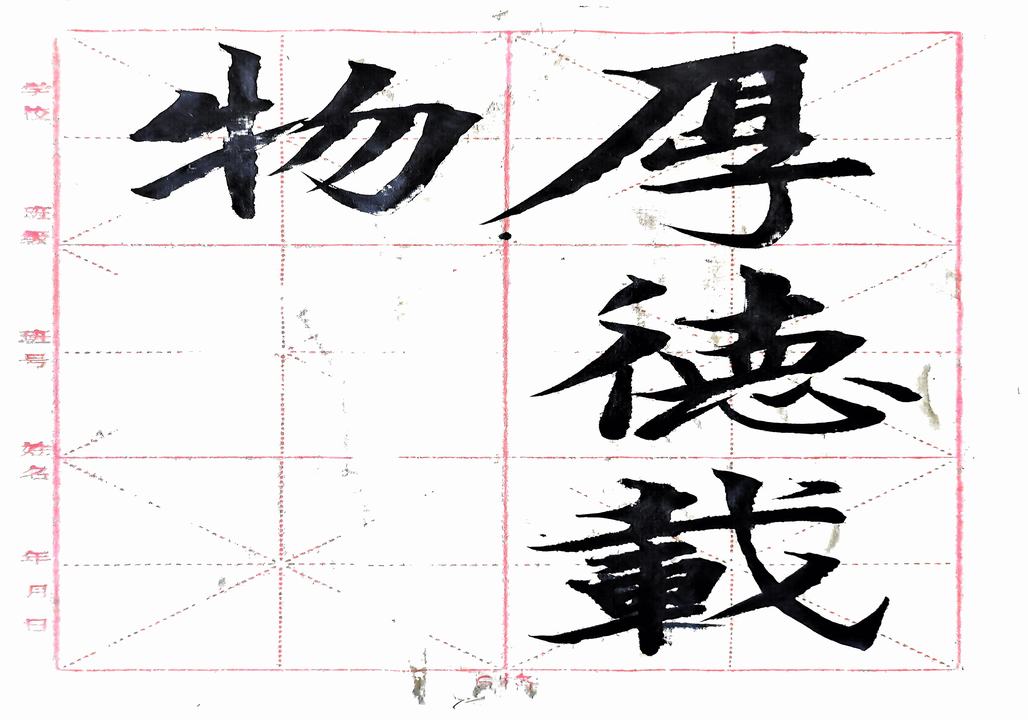 厚德載
物
学校
班级
班号
姓名
年月日